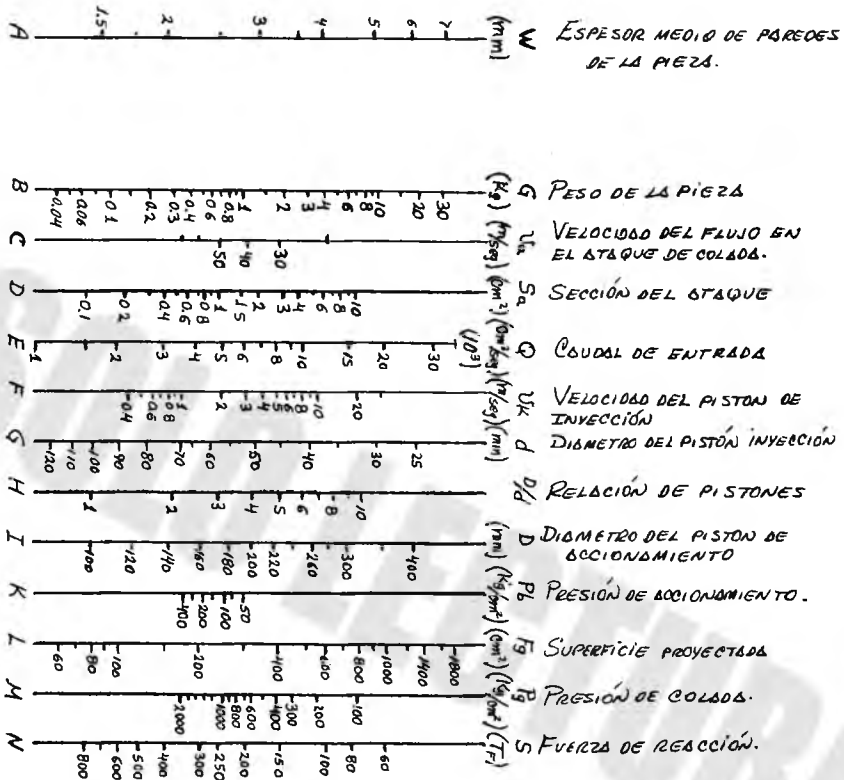 A 1.5 2 3 4 5 6 7 (mm) W ESPESOR MEDIO DE PAREDES
DE LA PIEZA.
B 0.04 0.06 0.1 0.2 0.3 0.4 0.6 0.8 1 2 3 4 6 8 10 20 30 (Kg) G PESO DE LA PIEZA
C 50 40 30 (m/seg) Va VELOCIDAD DEL FLUJO EN
EL ATAQUE DE COLADA.
D 0.1 0.2 0.4 0.6 0.8 1 1.5 2 3 4 6 8 10 (cm²) Sa SECCIÓN DEL ATAQUE
E 1 2 3 4 5 6 8 10 15 20 30 (10³) (cm³/seg) Q CAUDAL DE ENTRADA
F 0.4 0.6 0.8 1 2 3 4 5 6 8 10 20 (m/seg) VK VELOCIDAD DEL PISTON DE
INYECCIÓN
G 120 110 100 90 80 70 60 50 40 30 25 (mm) d DIAMETRO DEL PISTÓN INYECCIÓN
H 1 2 3 4 5 6 8 10 D/d RELACIÓN DE PISTONES
I 100 120 140 160 180 200 220 260 300 400 (mm) D DIAMETRO DEL PISTON DE
ACCIONAMIENTO
K 400 200 100 50 (Kg/cm²) Pb PRESIÓN DE ACCIONAMIENTO.
L 60 80 100 200 400 600 800 1000 1400 1800 (cm²) Fg SUPERFICIE PROYECTADA
M 2000 1000 800 600 400 300 200 100 (Kg/cm²) Pg PRESIÓN DE COLADA.
N 800 600 500 400 300 250 200 150 100 80 60 (TF) S FUERZA DE REACCIÓN.